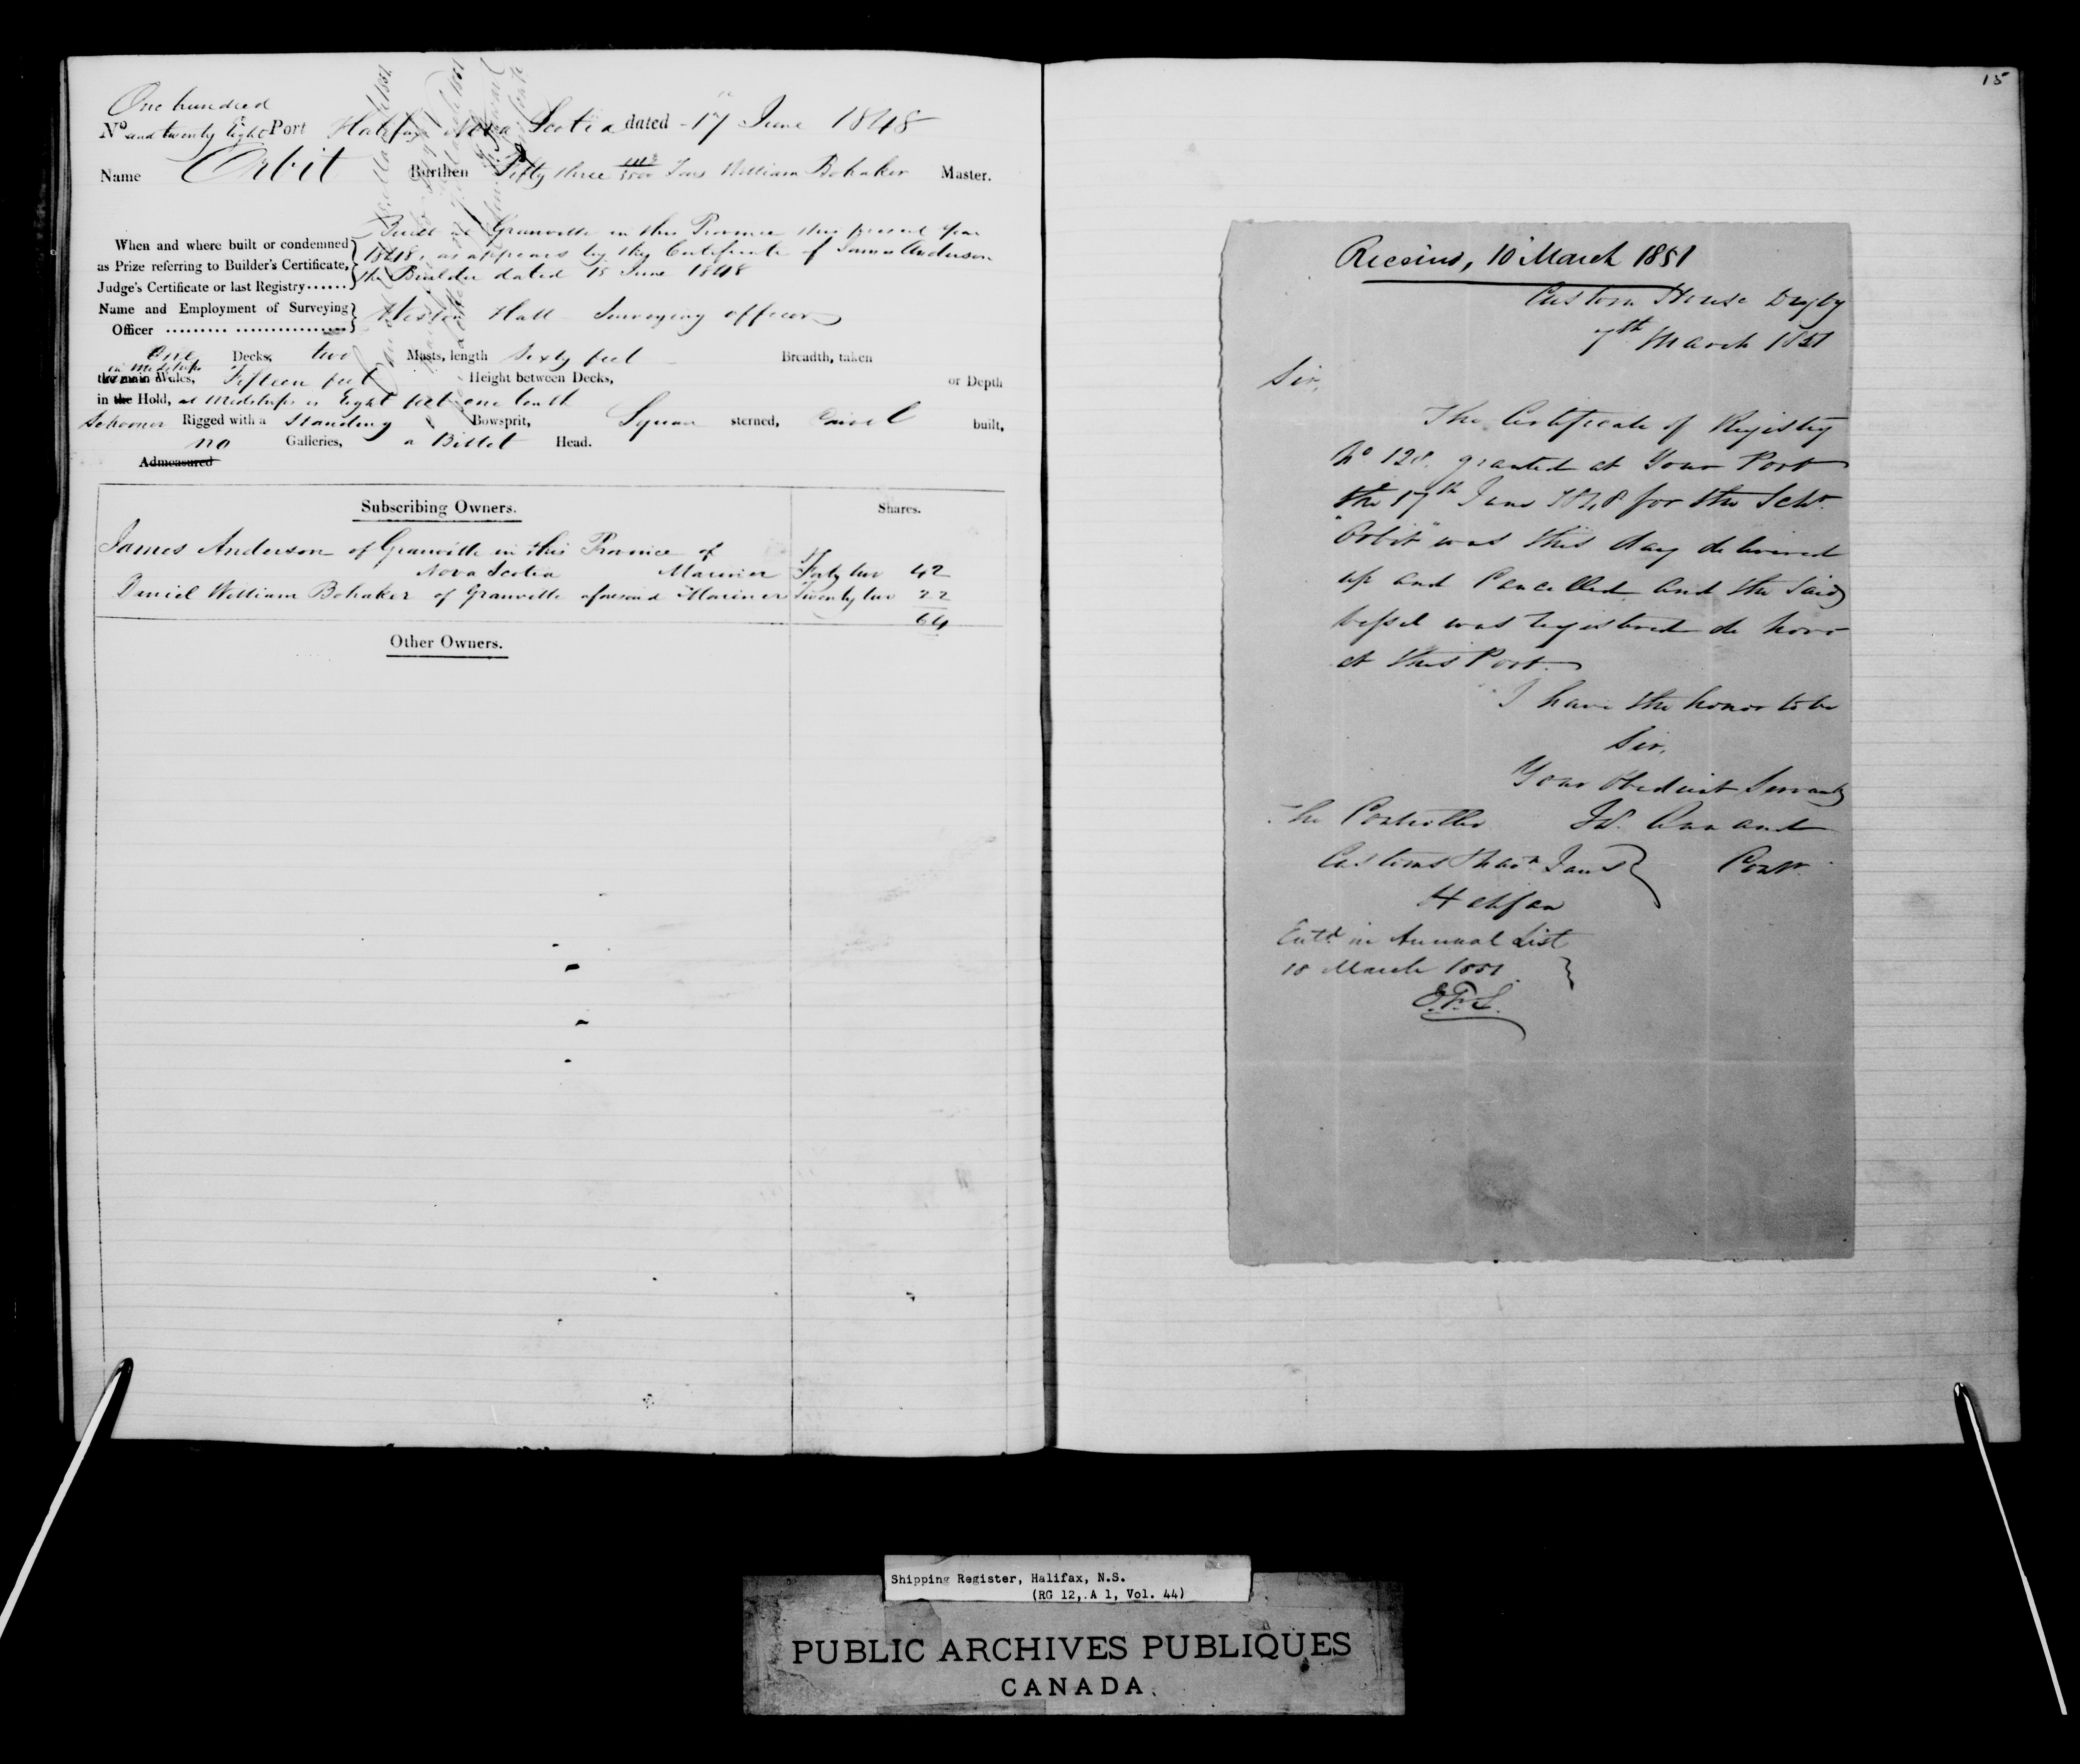 One hundred
No and twenty Eight Port Halifax Nova Scotia dated 17 June 1848
Name Orbit Burthen Fifty three Tons William Bohaker Master.
When and where built or condemned
as Prize referring to Builder's Certificate,
Judge's Certificate or last Registry......
Built at Granville in this Province this present year
1848, as appears by the Certificate of James Anderson
the Builder dated 15 June 1848
Name and Employment of Surveying
Officer
Hall Surveying officer
One Decks, two Masts, length Sixty feet Breadth, taken
in Midships
the main Wales, Fifteen feet Height between Decks, or Depth
in the Hold, at Midships is Eight feet one tenth
Schooner Rigged with a Standing Bowsprit, Square sterned, Carvel built,
no Galleries, a Billet Head.
Admeasured
Subscribing Owners. Shares.
James Anderson of Granville in this Province of
Nova Scotia Mariner Forty two 42
Daniel William Bohaker of Granville aforesaid Mariner Twenty two 22
64
Other Owners.
15
Received, 10 March 1851
Custom House Digby
7th March 1851
Sir,
The Certificate of Registry
No 128. granted at Your Port
the 17th June 1848 for the Schr.
"Orbit" was this day delivered
up and Cancelled and the Said
Vessel was registered de novo
at this Port.
I have the honor to be
Sir,
Your Obedient Servant
The Controller
Customs
Contr.
Halifax
Entd. in Annual List
10 March 1851
Shipping Register, Halifax, N.S.
(RG 12, A 1, Vol. 44)
PUBLIC ARCHIVES PUBLIQUES
CANADA